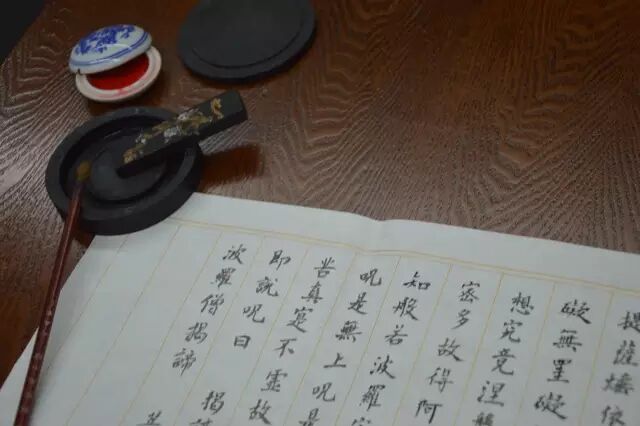 提薩埵依
礙無罣礙
想究竟涅槃
密多故得阿
知般若波羅密
呪是無上呪是
苦真寔不虛故
即說呪曰
波羅僧揭諦 揭